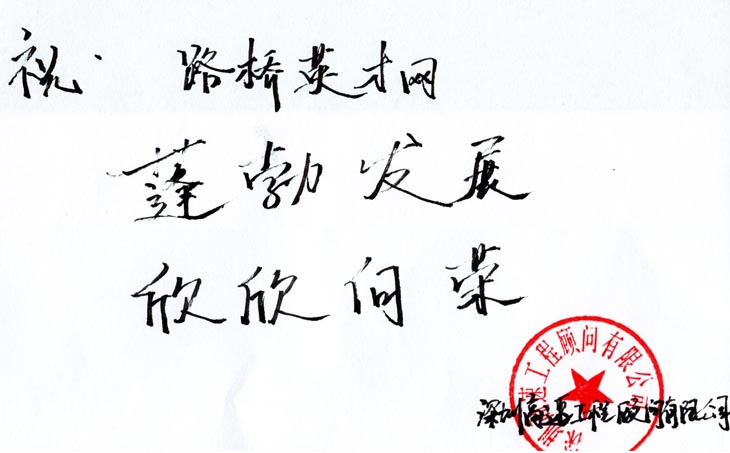 祝 路桥英才网
蓬勃发展
欣欣向荣
深圳高速工程顾问有限公司
深圳高速工程顾问有限公司